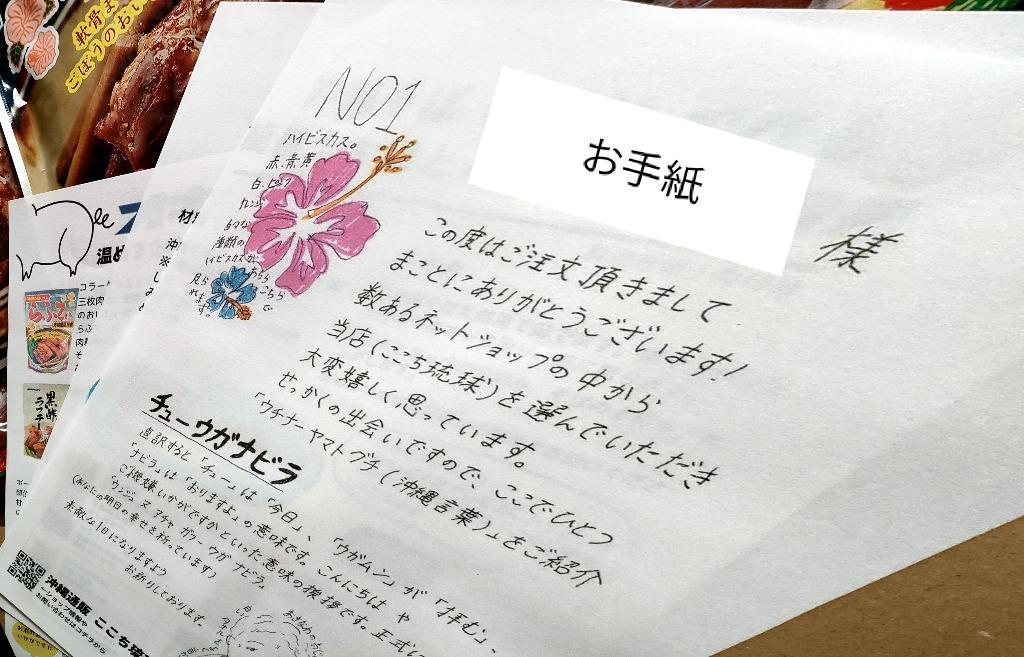 軟骨ま
ごぼうのおい
NO1
ハイビスカス。
赤、青、黄
白、ピンク
オレンジ
種類の
ハイビスカスが
あちら
こちらで
見られます。
お手紙
様
この度はご注文頂きまして
まことにありがとうございます!
数あるネットショップの中から
当店(ここち琉球)を選んでいただき
大変嬉しく思っています。
せっかくの出会いですので、ここでひとつ
「ウチナーヤマトグチ(沖縄言葉)」をご紹介
チューウガナビラ
直訳すると「チュー」は「今日」、「ウガムン」が「拝む」、
「ナビラ」は「おりますよ」の意味です。こんにちは や
ご機嫌いかがですかといった意味の挨拶です。正式に
「ウンジュ ヌ アチャ ガフー ウガ ナビラ」
(あなたの明日の幸せを祈っています)
素敵な1日になりますよう
お祈りしております。
沖縄通販 ここち琉
ショップ情報や
お問い合わせはコチラから
温と
コラー
三枚肉
のお
らふ
肉
材
沖
らふてぃ
黒酢
ラフテー